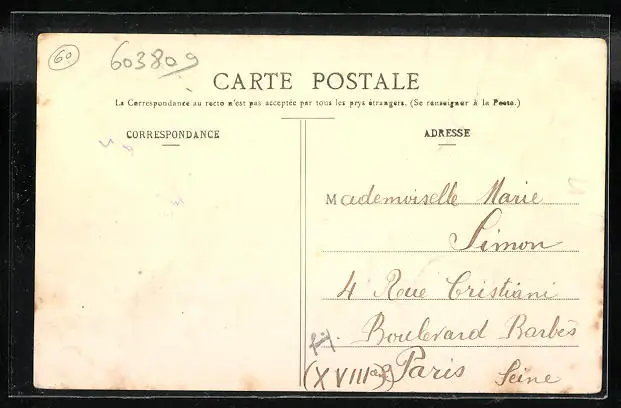 60
603809
CARTE POSTALE
La Correspondance au recto n'est pas acceptée par tous les pays étrangers. (Se renseigner à la Poste.)
CORRESPONDANCE
ADRESSE
Mademoiselle Marie
Simon
4 Rue Cristiani
Boulevard Barbès
(XVIIIe) Paris Seine